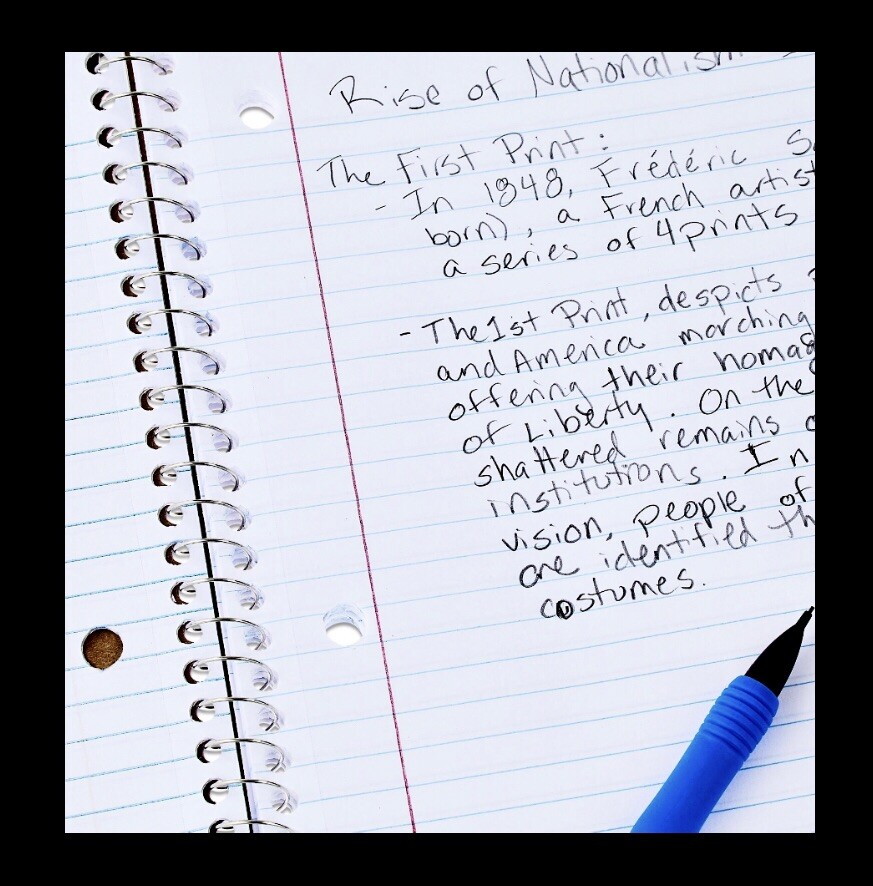 Rise of Nationalism
The First Print :
- In 1848, Frédéric S
born), a French artist
a series of 4 prints
- The 1st Print, despicts
and America marching
offering their homag
of Liberty. On the
shattered remains o
institutions. In
vision, people of
are identified th
costumes.